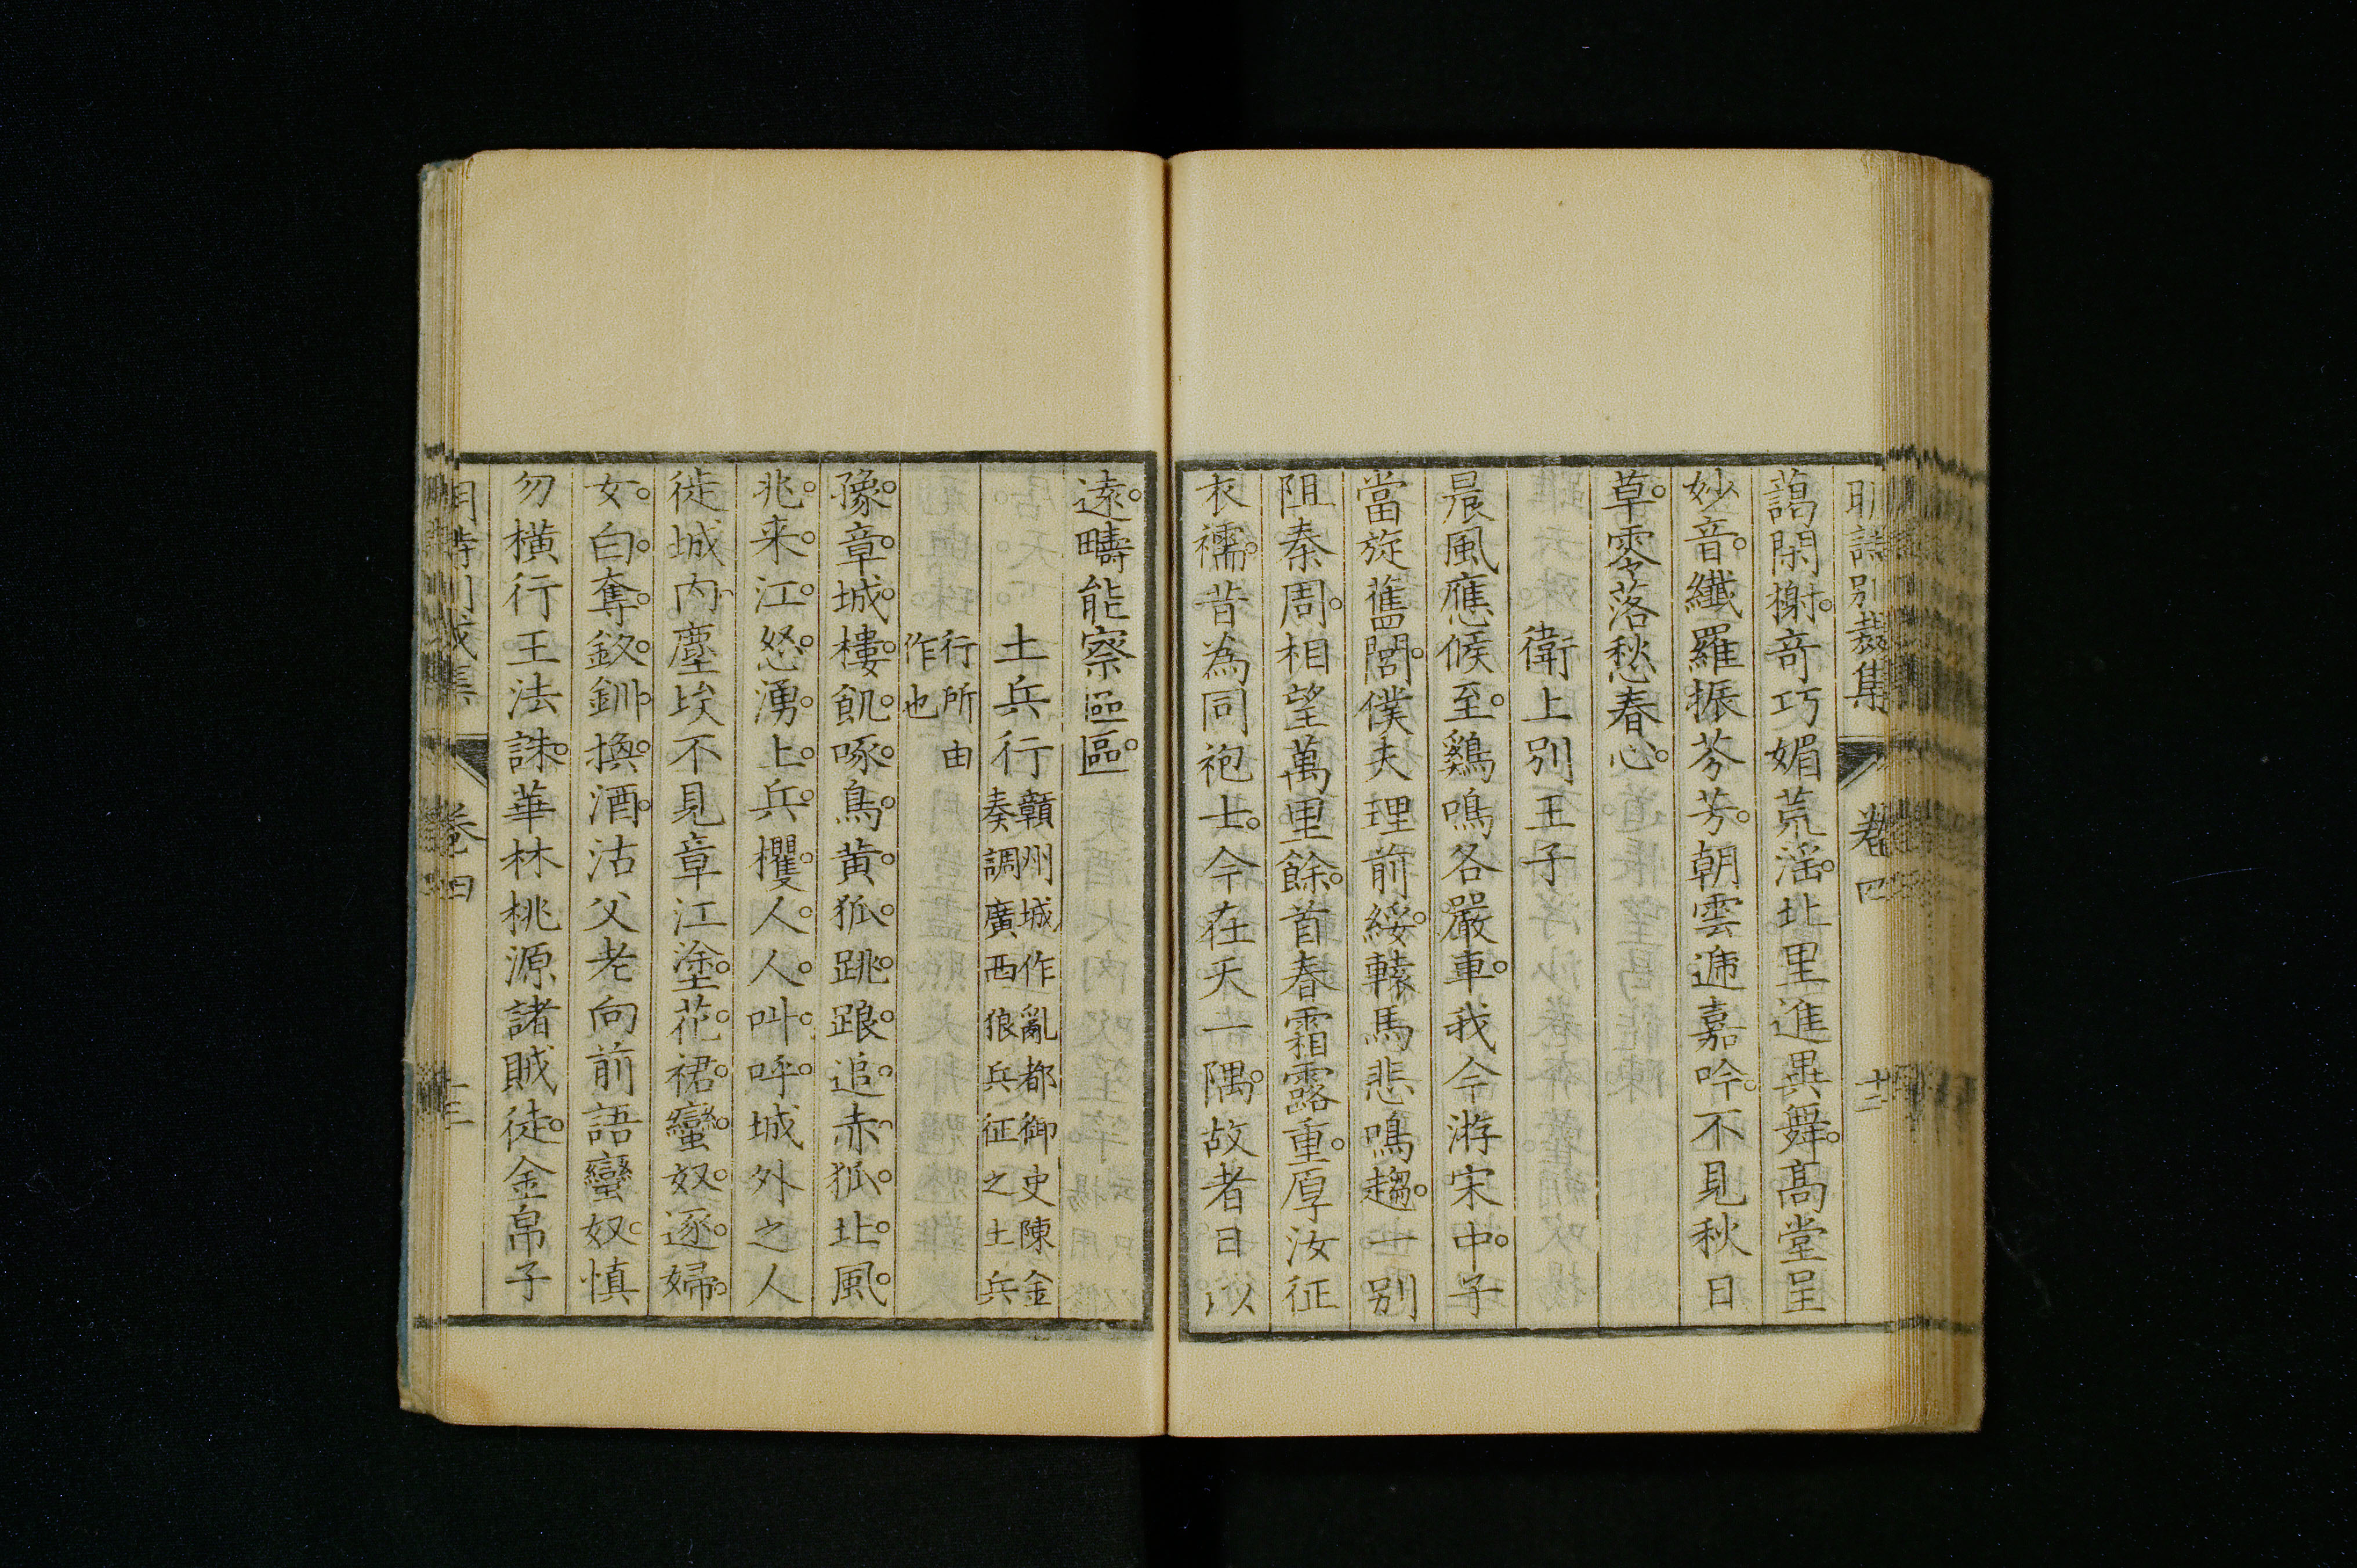 明詩別裁集 卷四 十二
藹閑榭奇巧媚荒淫北里進異舞高堂呈
妙音纖羅振芬芳朝雲遞嘉吟不見秋日
草零落愁春心
衛上別王子
晨風應候至鷄鳴各嚴車我今游宋中子
當旋舊閭僕夫理前綏轅馬悲鳴趨一別
阻秦周相望萬里餘首春霜露重厚汝征
衣襦昔為同袍士今在天一隅故者日以
遠疇能察區區
土兵行 贛州城作亂都御史陳金
奏調廣西狼兵征之土兵
行所由
作也
豫章城樓飢啄烏黃狐跳踉追赤狐北風
北来江怒湧土兵攫人人叫呼城外之人
徙城內塵埃不見章江塗花裙蠻奴逐婦
女白奪釵釧換酒沽父老向前語蠻奴慎
勿橫行王法誅華林桃源諸賊徒金帛子
明詩別裁集 卷四 十三